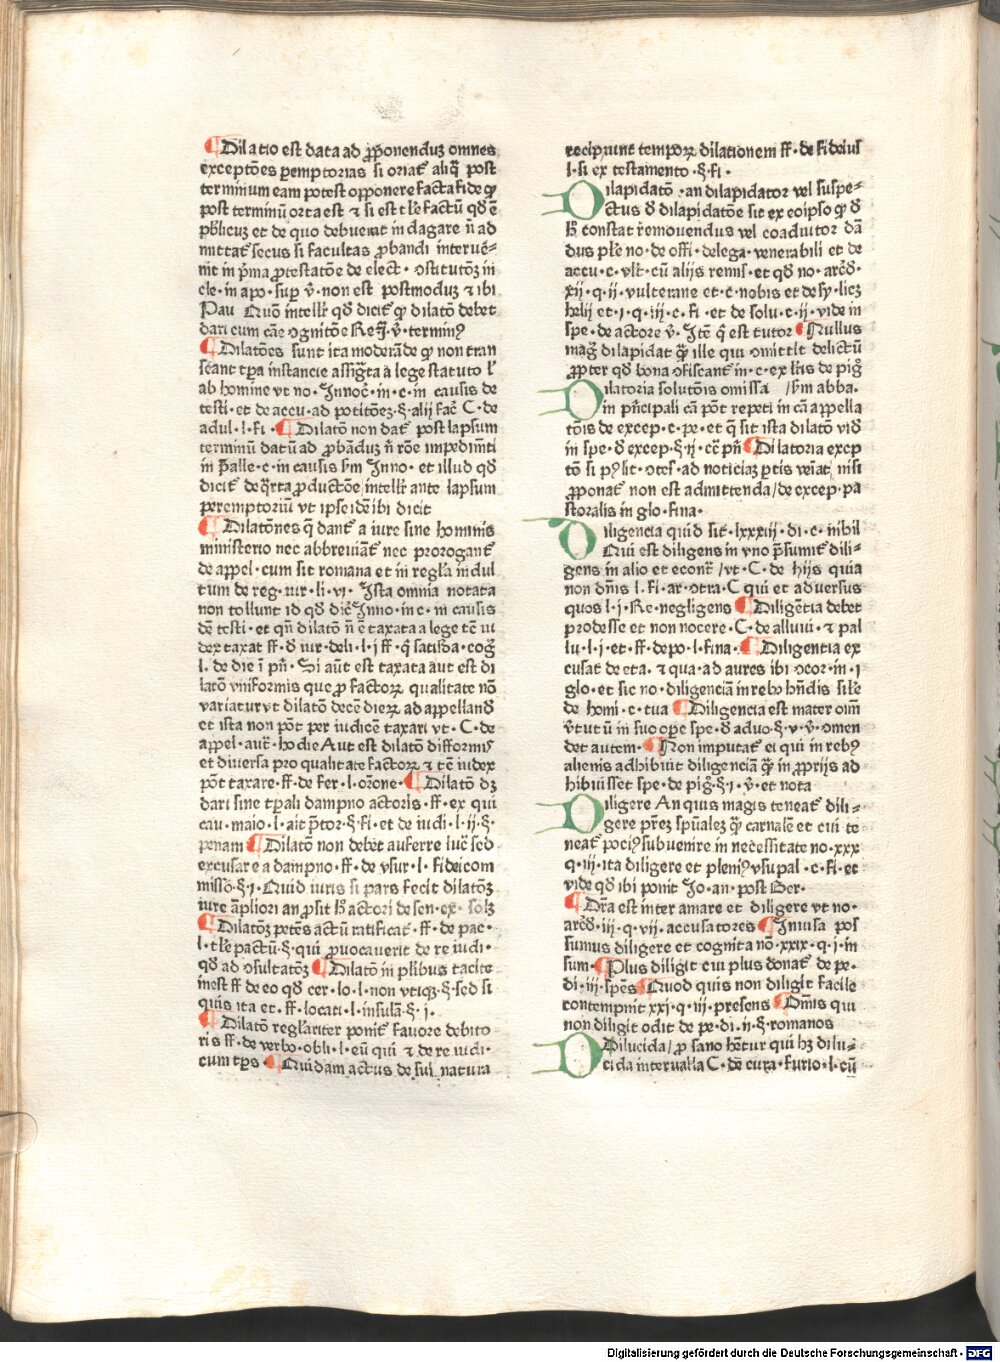 ¶ Dilatio est data ad ꝓponenduꝫ omnes
exceptōes peremptorias si oriat᷑ aliq̄ post
terminum eam potest opponere facta fide ꝙ
post terminū orta est ⁊ si est tl̄e factū qđ ē
pb̄licuꝫ et de quo debuerat indagare n̄ ad
mittat᷑ secus si facultas ꝓbandi interuē⸗
nit in p̄ma ꝓtestatōe de elect· ↄstitutōꝫ in
cle·in apo·sup v̄·non est postmoduꝫ ⁊ ibi
Pau Quō intelli᷑ qđ dicit᷑ ꝙ dilatō debet
dari cum cāe ↄgnitōe Re·q̄·v̄·terminꝰ
¶ Dilatōes sunt ita moderāde ꝙ non tran
seant tp̄a instancie assig̃ta a lege statuto ł
ab homine vt no·Innoc̄·in·c·in causis de
testi·et de accu·ad petitōeꝫ·§·alij fac̄ C·de
adul·l·fi· ¶ Dilatō non dat᷑ post lapsum
terminū datū ad ꝓbāduꝫ n̄ rōe impedīm̄ti
in p̄alle·c·in causis sm̄ Inno·et illud qđ
dicit᷑ de q̄rta ꝓductōe intelli᷑ ante lapsum
peremptoriū vt ipse idē ibi dicit
¶ Dilatōnes q̄ dant᷑ a iure sine hominis
ministerio nec abbreuiāt᷑ nec prorogant᷑
de appel·cum sit romana et in regl̄a indul
tum de reg·iur·li·vi· Ista omnia notata
non tollunt id qđ dic̄ Inno·in c·in causis
dē testi·et qn̄ dilatō n̄ ē taxata a lege tē iu
dex taxat ff·đ iur·deli·l·j ff·q̄ satisđa·cog̃
l·de die ī pn̄·Si aūt est taxata aut est di
latō vniformis que ꝓ factoꝝ qualitate nō
variatur vt dilatō decē dieꝝ ad appellanđ
et ista non pōt per iudicē taxari vt·C·de
appel·aut̄·hodie Aut est dilatō difformis
et diuersa pro qualitate factoꝝ ⁊ tē iudex
pōt taxare·ff·de fer·l·oīone· ¶ Dilatō dꝫ
dari sine tp̄ali dampno actoris·ff·ex qui
cau·maio·l·ait p̄tor·§·fi·et de iudi·l·ij·§·
penam ¶ Dilatō non debet auferre luc᷑ sed
excusare a dampno·ff·de vsur·l·fideicom
missō·§·j·Quid iuris si pars fecit dilatōꝫ
iure āpliori an ꝓsit ł actori de sen·ex·solꝫ
¶ Dilatōꝫ petēs actū ratificat᷑·ff·de pac·
l·tl̄e pactū·§·qui ꝓuocauerit de re iudi·
qđ ad ↄsultatōꝫ ¶ Dilatō in pl̄ibus tacite
inest ff de eo qđ cer·lo·l·non vtiqꝫ·§·sed si
quis ita et·ff·locati·l·insulā·§·j·
¶ Dilatō regl̄ariter ponit᷑ fauore debito
ris ff·de verbo·obli·l·eū qui ⁊ de re iudi·
cum tp̄s· ¶ Quidam actus de sui natura
recipiunt tempoꝝ dilationem ff·de fideius
l·si ex testamento·§·fi·
Dilapidatō·an dilapidator vel suspe⸗
ctus đ dilapidatōe sit ex eoipso ꝙ đ
ł constat remouendus vel coadiutor dā
dus ple̅ no·de offi·delega·venerabili et de
accu·c·vlt̄·cū alijs remiſ·et qđ no·arcđ·
xij·q·ij·vulterane et·c·nobis et de sy·licꝫ
helij et·j·q·iij·c·fi·et de solu·c·ij·vide in
spe·de actore v̄·Itē q̄ est tutor ¶ Nullus
mag̃ dilapidat ꝙ̄ ille qui ↄmittit delictū
ꝓpter qđ bona ↄfiscant᷑ in·c·ex lr̄is de pig̃
Dilatoria solutōis omissa /sm̄ abba·
in p̄ncipali cā pōt repeti in cā appella
tōis de excep·c·pe·et q̄ sit ista dilatō viđ
in spe·đ excep·§·ij·cc̄ pn̄ ¶ Dilatoria excep
tō si pꝰlit·ↄtes·ad noticiaꝫ p̄tis veīat, nisi
ꝓponat᷑ non est admittenda/de excep·pa
storalis in glo·fina·
Diligencia quid sit·lxxxiij·di·c·nihil
Qui est diligens in vno p̄sumit᷑ dili⸗
gens in alio et econt᷑/vt·C·de hijs quia
non dn̄is l·fi·ar·ↄtra·C qui et aduersus
quos l·j·Re·negligens ¶ Diligētia debet
prodesse et non nocere·C·de alluui·⁊ pal
lu·l·j·et·ff·depo·l·fina· ¶ Diligentia ex
cusat de eta·⁊ qua·ad aures ibi ↄcor·in·j
glo·et sic no·diligenciā in rebꝰ hn̄dis sil̄e
de homi·c·tua ¶ Diligencia est mater oīm
v̄tutū in suo ope spe·đ aduo·§·v·v̄·omen
det autem· ¶ Non imputat᷑ ei qui in rebꝰ
alienis adhibuit diligenciā ꝙ̄ in ꝓprijs ad
hibuisset spe·de pig̃·§·j·v̄·et nota
Diligere An quis magis teneat᷑ dili⸗
gere pr̄eꝫ spūaleꝫ ꝙ̄ carnalē et cui te
neat᷑ pociꝰ subuenire in necessitate no·xxx
q·iij·ita diligere et pleniꝰ vsu pal·c·fi·et
vide qđ ibi ponit Jo·an·post Ber·
¶ Dr̄a est inter amare et diligere vt no·
arcđ·iij·q·vij·accusatores ¶ Inuisa pos
sumus diligere et cognita nō·xxix·q·j·in
sum· ¶ Plus diligit cui plus donat᷑ de pe·
di·iij·sp̄es ¶ Quod quis non diligit facile
contempnit xxj·q·iij·presens ¶ Om̄is qui
non diligit odit de pe·di·ij·§·romanos
Dilucida/ꝓ sano hētur qui hꝫ dilu⸗
cida interuallia C·de cura·furio·l·cū